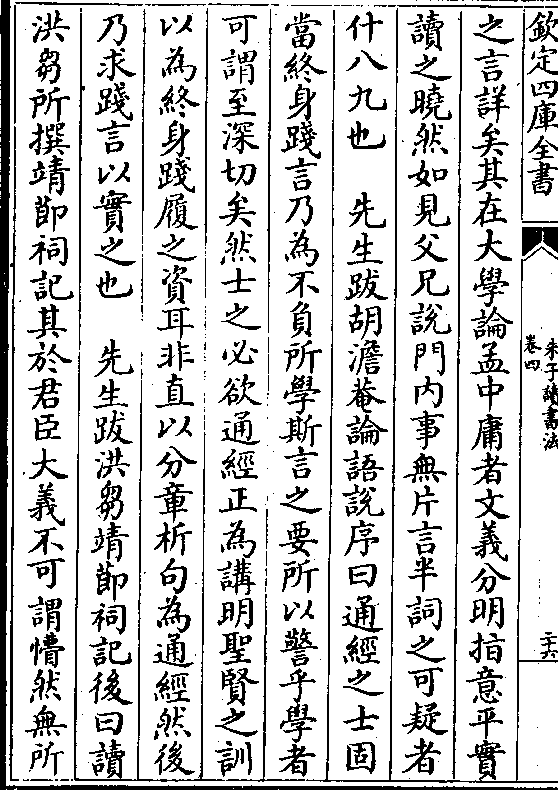 欽定四庫全書
朱子讀書法
卷四
二十六
之言詳矣其在大學論孟中庸者文義分明指意平實
讀之曉然如見父兄說門內事無片言半詞之可疑者
什八九也　先生跋胡澹菴論語說序曰通經之士固
當終身踐言乃為不負所學斯言之要所以警乎學者
可謂至深切矣然士之必欲通經正為講明聖賢之訓
以為終身踐履之資耳非直以分章析句為通經然後
乃求踐言以實之也　先生跋洪芻靖節祠記後曰讀
洪芻所撰靖節祠記其於君臣大義不可謂懵然無所